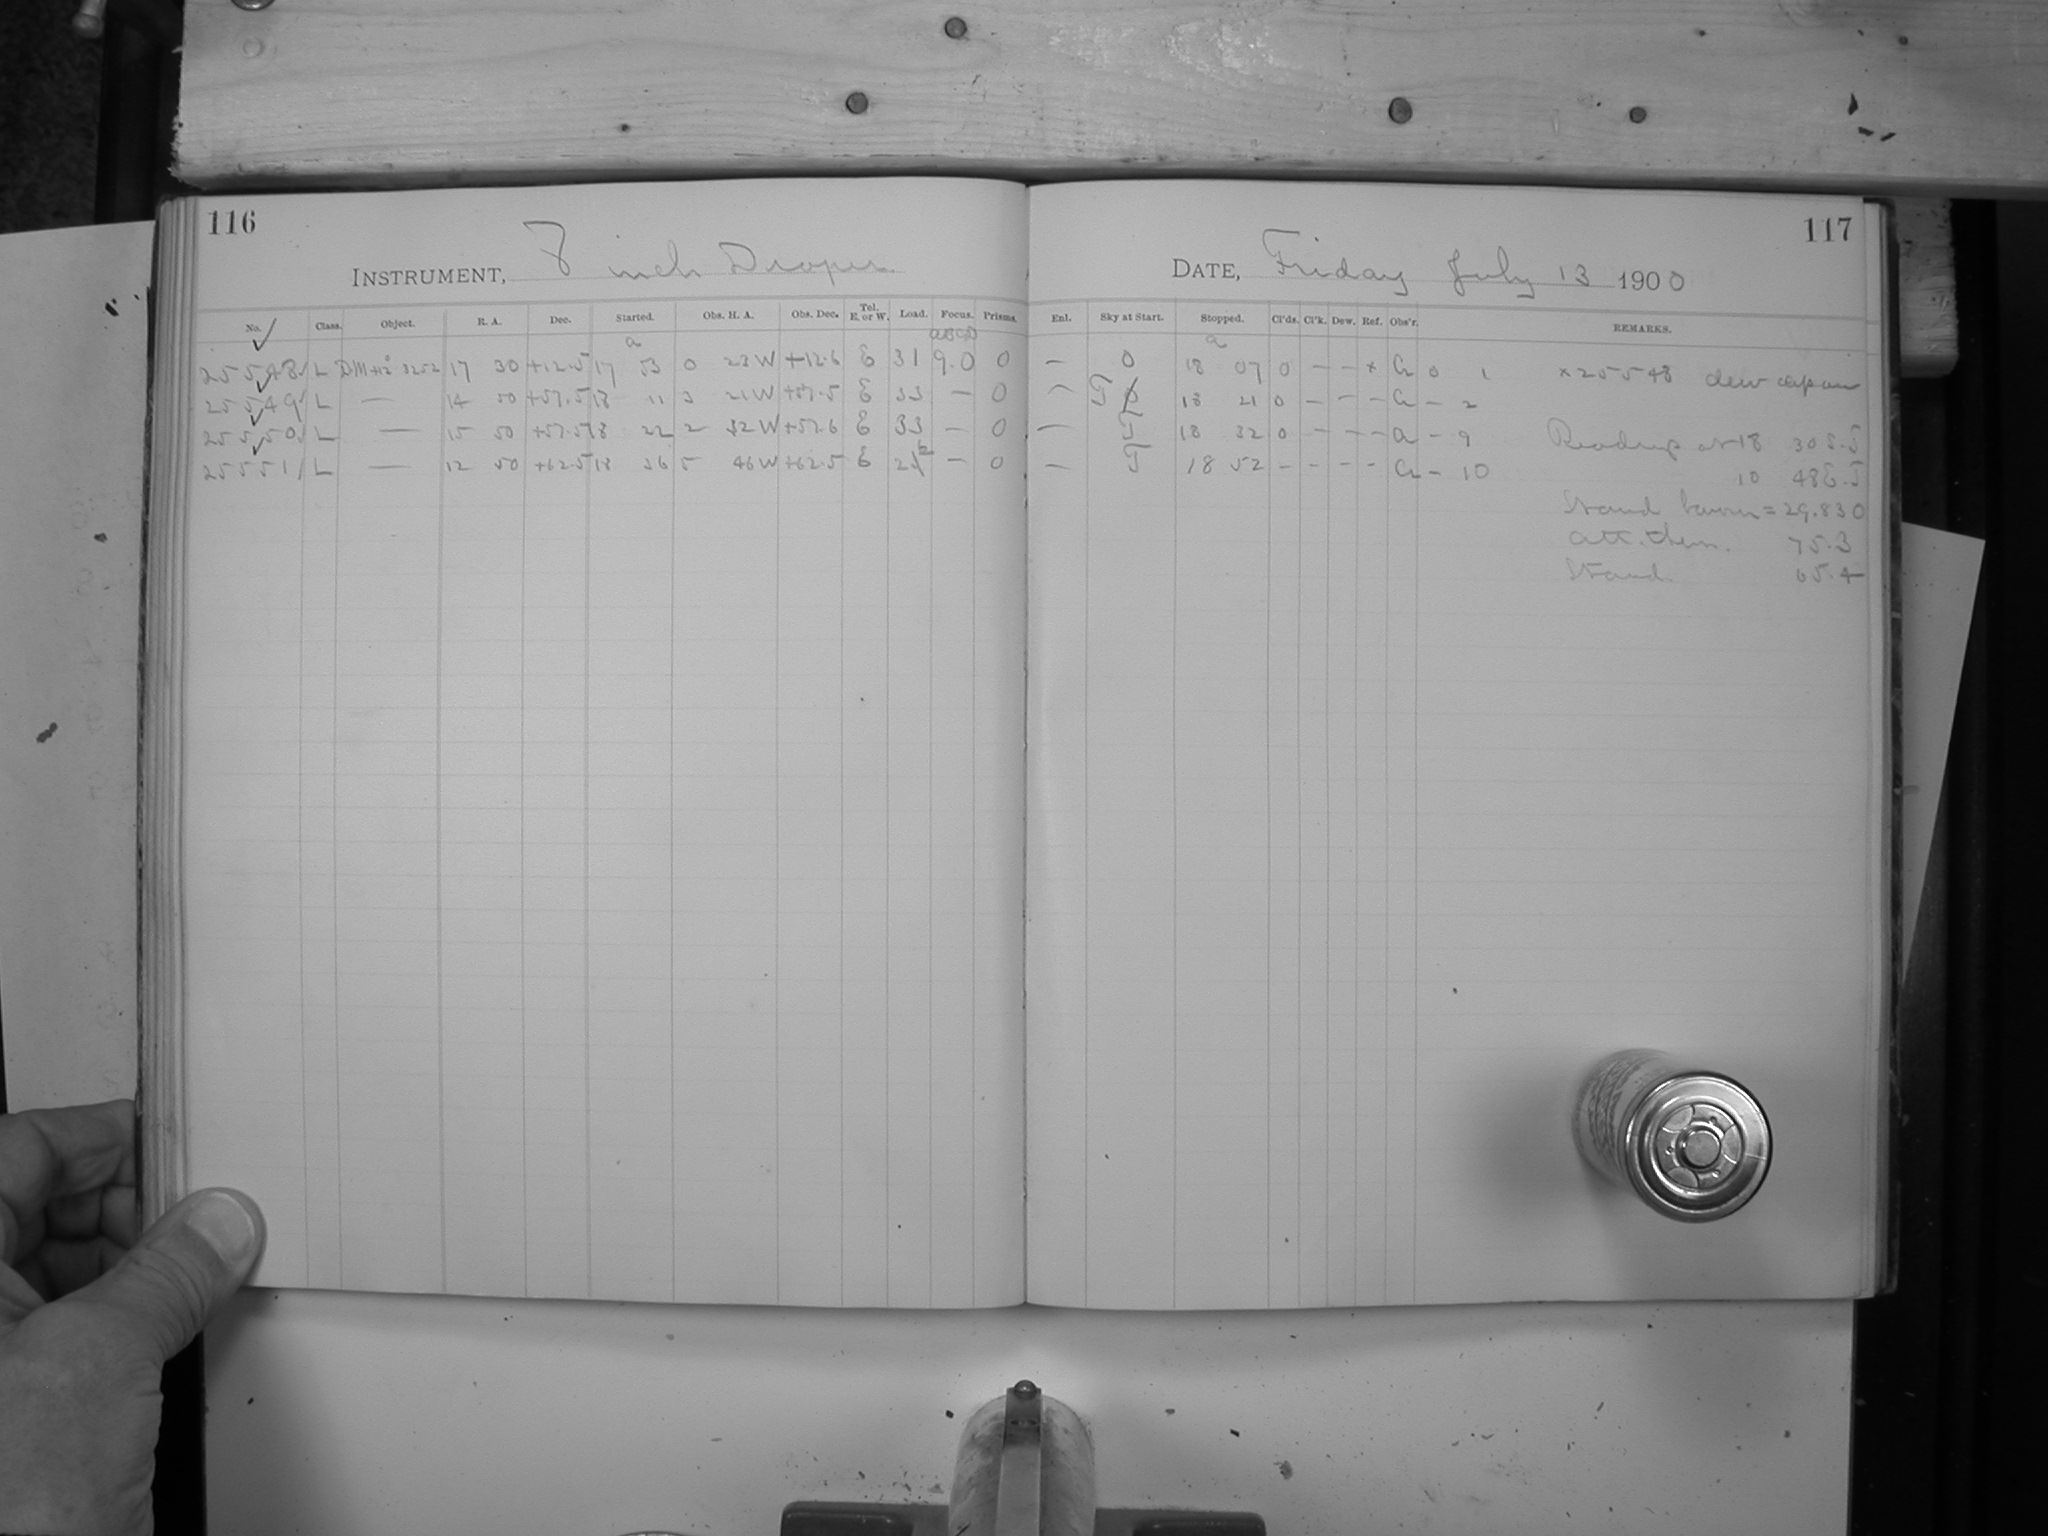 116
INSTRUMENT, 8 inch Draper
No. Class. Object. R. A. Dec. Started. Obs. H. A. Obs. Dec. Tel. E. or W. Load. Focus. Prisms.
25548 L DM+12° 3252 17 30 +12.5 17 53 0 23 W +12.6 E 31 9.0 0
25549 L — 14 50 +57.5 18 11 3 21 W +57.5 E 33 — 0
25550 L — 15 50 +57.5 18 22 2 32 W +57.6 E 33 — 0
25551 L — 12 50 +62.5 18 36 5 46 W +62.5 E — 0
117
DATE, Friday July 13 1900
Enl. Sky at Start. Stopped. Cl'ds. Cl'k. Dew. Ref. Obs'r. REMARKS.
— 0 18 07 0 — — × 0 1 × 25548 dew cap on
— 18 21 0 — — — — 2
— 18 32 0 — — — — 9 Read up at 18 30
— 18 52 — — — — — 10 18 48
Stand barom = 29.830
Att. therm. 75.3
Stand. 65.4